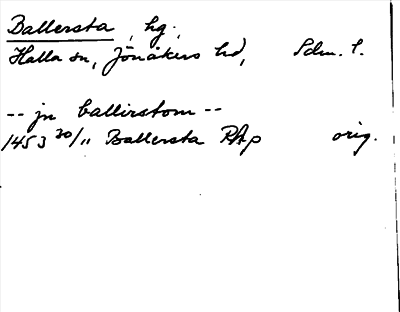 Ballersta, hg.
Halla sn, Jönåkers hd, Sdm. l.
-- jn ballirstom --
1453 30/11 Ballersta RAp orig.